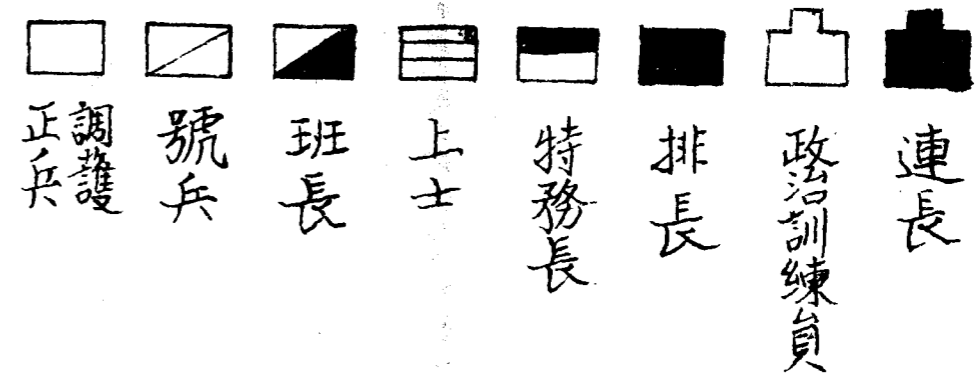 連長
政治訓練員
排長
特務長
上士
班長
號兵
調護
正兵